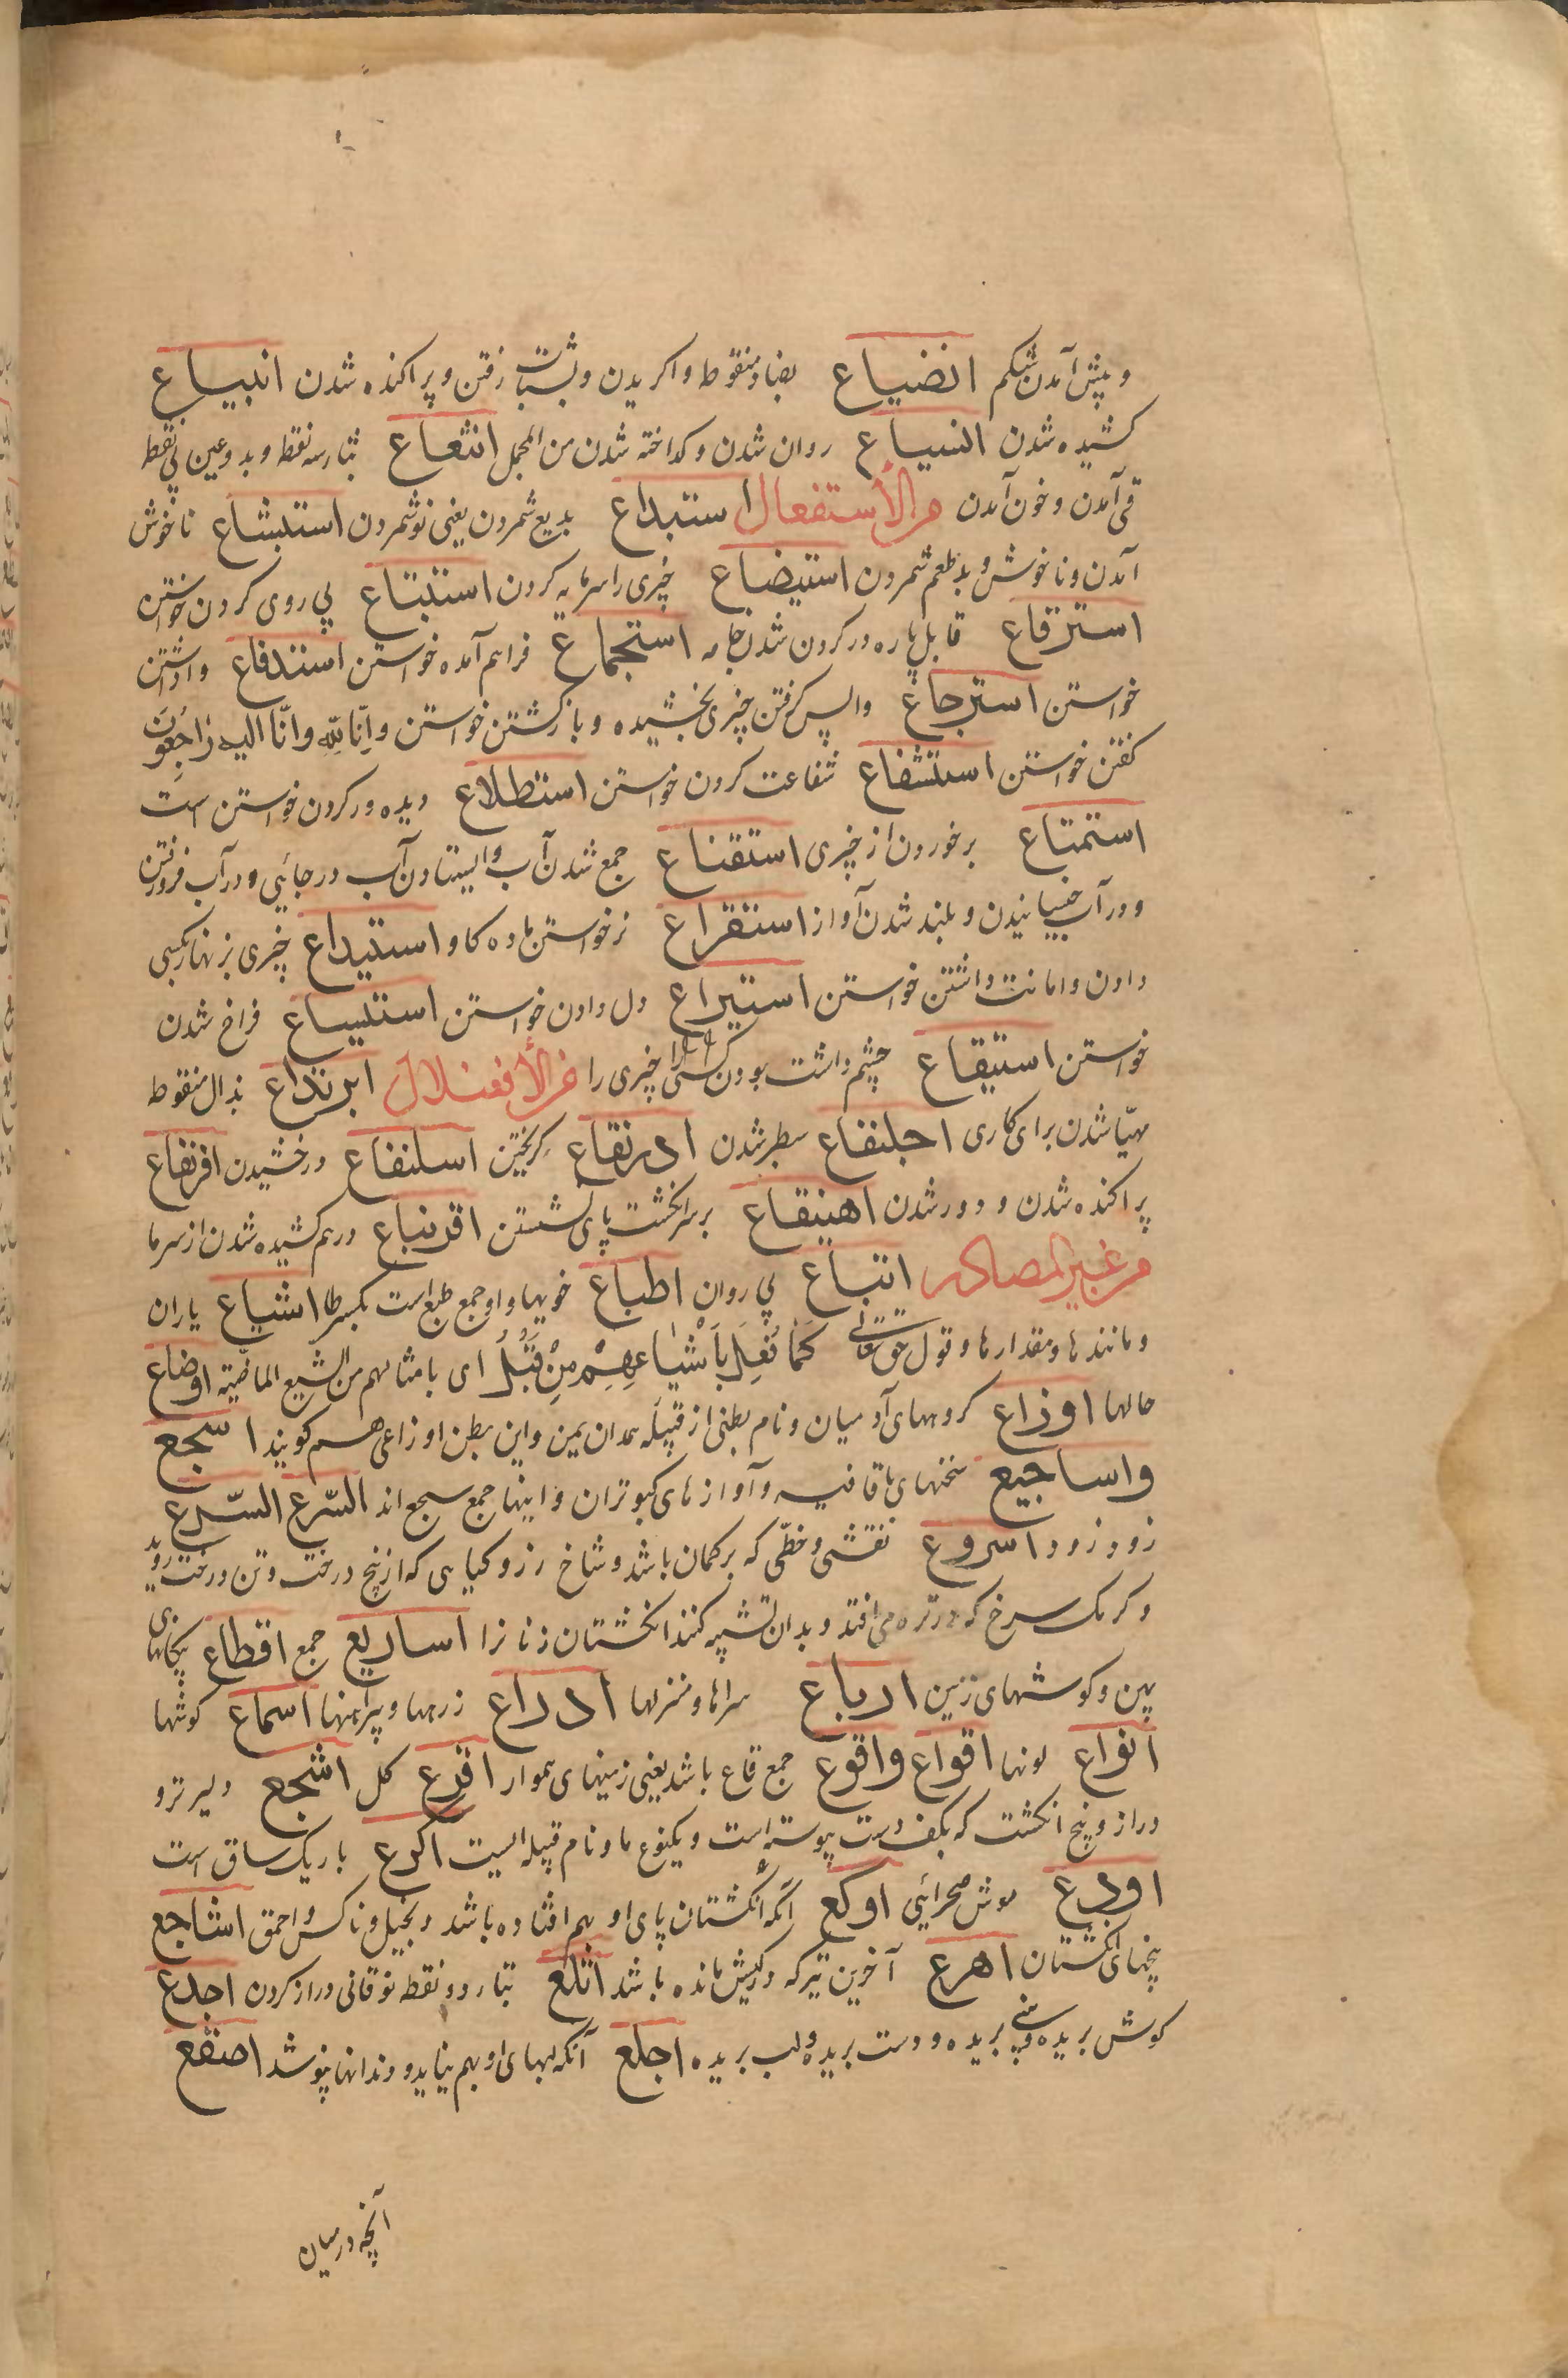 و پیش آمدن شکم انضیاع بضاد منقوط واکریدن و بشتاب رفتن و پراکنده شدن انبیاع
کشیده شدن انسیاع روان شدن و کداخته شدن من المجمل انثعاع بثا سه نقطه و بدو عین بی نقط
قی آمدن و خون آمدن من الأستفعال استبداع بدیع شمردن یعنی نو شمردن استبشاع ناخوش
آمدن و ناخوش و بد طعم شمردن استبضاع چیزی را سرمایه کردن استتباع پی روی کردن خواستن
استرقاع قابل پاره در کردن شدن جامه استجماع فراهم آمده خواستن استدفاع واداشتن
خواستن استرجاع واپس کرفتن چیزی بخشیده و بازکشتن خواستن و انّا لله وانّا الیه راجعون
کفتن خواستن استشفاع شفاعت کردن خواستن استطلاع دیده ور کردن خواستن است
استمتاع برخوردن از چیزی استنقاع جمع شدن آب و ایستادن آب در جائی و در آب فرو رفتن
و در آب خیسانیدن و بلند شدن آواز استقراع نر خواستن ماده کاو استیداع چیزی بزنهار بکسی
دادن و امانت داشتن خواستن استیراع دل دادن خواستن استیساع فراخ شدن
خواستن استیقاع چشم داشت بودن کسی را چیزی را من الأفعنلال ابرنذاع بذال منقوط
مهیّا شدن برای کاری اجلنفاع سطبر شدن ادرنقاع کریختن اسلنقاع درخشیدن افرنقاع
پراکنده شدن و دور شدن اهبنقاع بر سر انکشت پای نشستن اقرنباع درهم کشیده شدن از سرما
من غیر المصادر اتباع پی روان اطباع خویها و او جمع طبع است بکسر طا اشیاع یاران
و مانندها و مقدارها و قول حق تعالی کَمَا فُعِلَ بِأَشْیَاعِهِمْ مِنْ قَبْلُ ای بامثالهم من الشیع الماضیة اوضاع
حالها اوزاع کروههای آدمیان و نام بطنی از قبیله همدان یمن و این بطن اوزاعی هم کویند اسجع
واساجیع سخنهای با قافیه و آوازهای کبوتران و اینها جمع سجع اند السّرع السّرع
زود زود اسروع نقشی و خطّی که بر کمان باشد و شاخ رز و کیاهی که از بیخ درخت و تن درخت روید
و کرمک سرخ که در تره می افتد و بدان تشبیه کنند انکشتان زنانرا اساریع جمع اقطاع پیکانهای
پهن و کوشهای زمین ارباع سراها و منزلها ادراع زرهها و پیراهنها اسماع کوشها
انواع لونها اقواع واقوع جمع قاع باشد یعنی زمینهای هموار اقرع کل اشجع دلیر تر و
دراز و بیخ انکشت که بکف دست پیوسته است و یکنوع مار و نام قبیله ایست اکرع باریک ساق است
اودع موش صحرائی اوکع آنکه انکشتان پای او بهم افتاده باشد و بخیل و ناکس و احمق اشاجع
بیخهای انکشتان اهزع آخرین تیر که در کیش مانده باشد اتلع بتا دو نقطه فوقانی دراز کردن اجدع
کوش بریده و بینی بریده و دست بریده و لب بریده اجلع آنکه لبهای او بهم نیاید و دندانها نپوشد اصقع
آنچه در میان